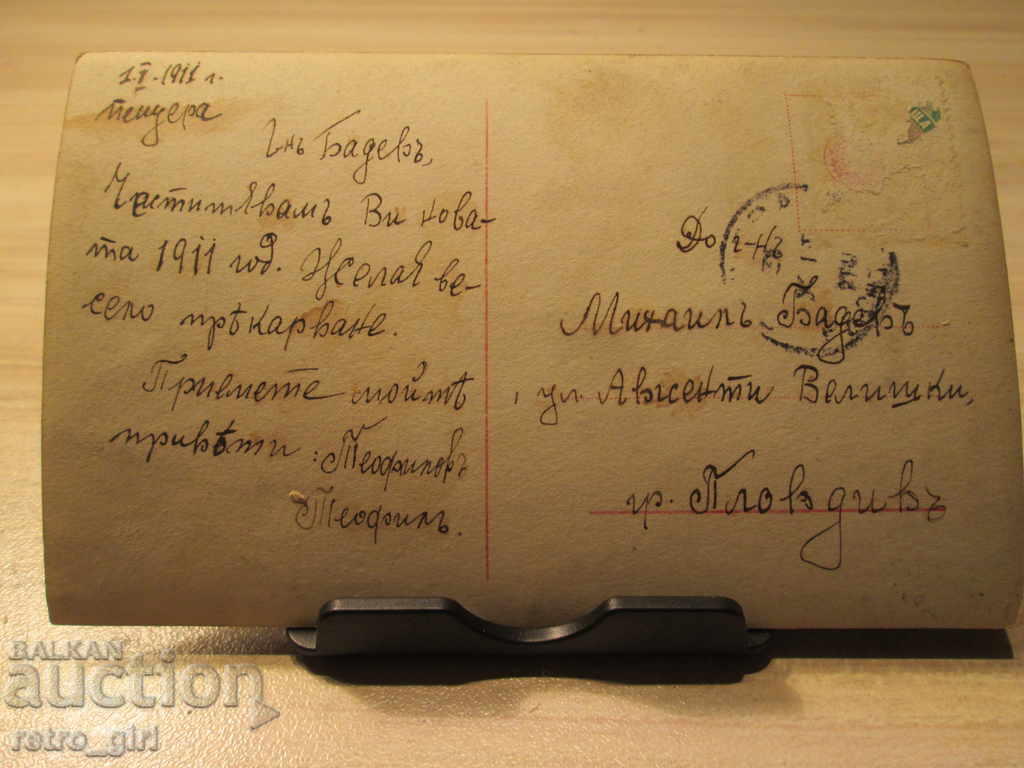 1.I.-1911 г.
Пещера
Г-нъ Бадевъ,
Честитявамъ Ви нова-
та 1911 год. Желая ве-
село прѣкарване.
Приемете моитѣ
привѣти: Теофиловъ
Теофилъ.
До г-нъ
Михаилъ Бадевъ
ул. Авксенти Велишки,
гр. Пловдивъ
BALKAN
auction
retro_girl